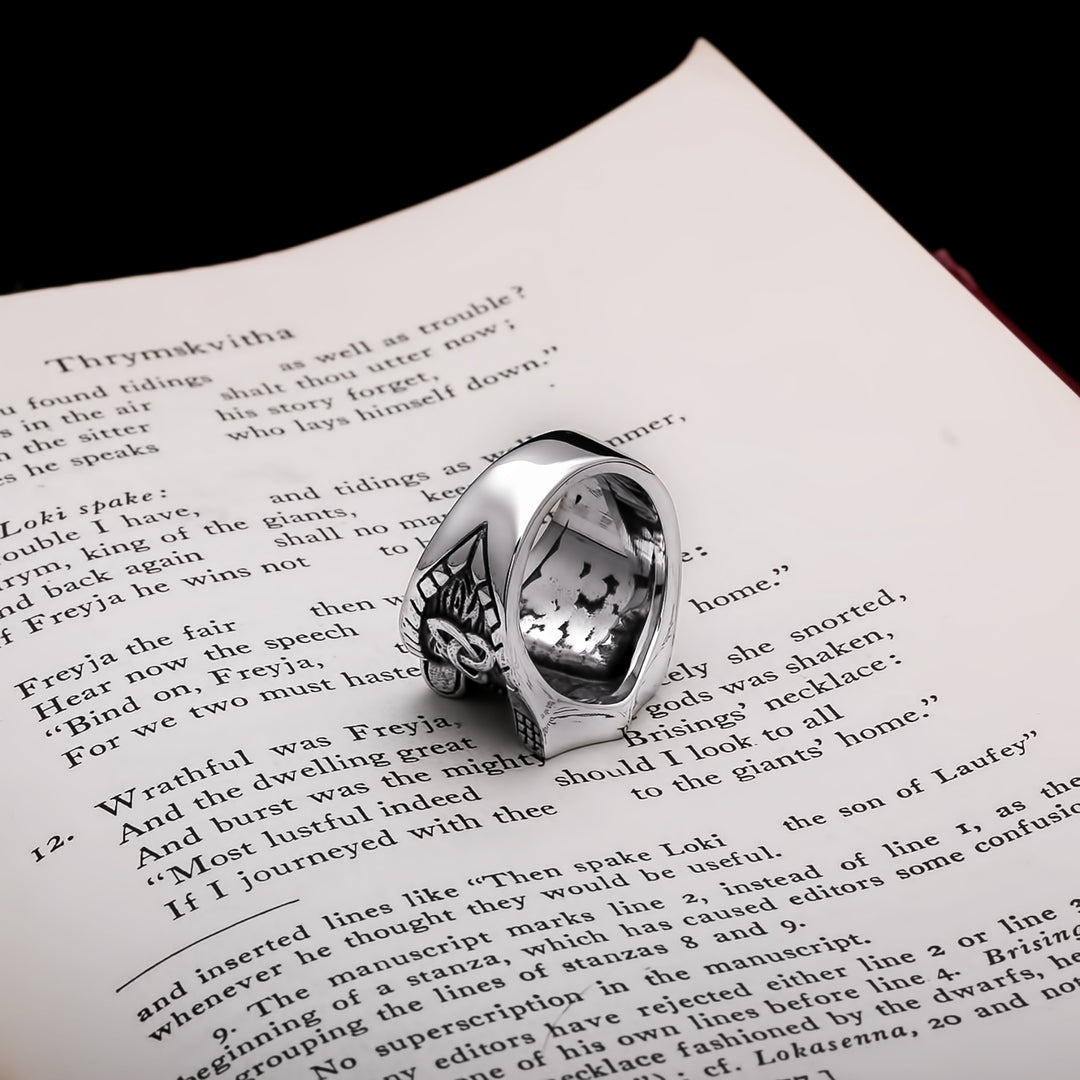 Thrymskvitha
found tidings as well as trouble?
in the air shalt thou utter now;
the sitter his story forget,
he speaks who lays himself down."
Loki spake:
I have, and tidings as
king of the giants,
back again shall no
Freyja he wins not to
Freyja the fair then
Hear now the speech
"Bind on, Freyja,
For we two must haste home."
12. Wrathful was Freyja, she snorted,
And the dwelling great gods was shaken,
And burst was the mighty Brisings' necklace:
"Most lustful indeed should I look to all
If I journeyed with thee to the giants' home."
and inserted lines like "Then spake Loki the son of Laufey"
whenever he thought they would be useful.
9. The manuscript marks line 2, instead of line 1, as the
beginning of a stanza, which has caused editors some
grouping the lines of stanzas 8 and 9.
No superscription in the manuscript.
editors have rejected either line 2 or line
of his own lines before line 4.
fashioned by the dwarfs,
cf. Lokasenna, 20 and